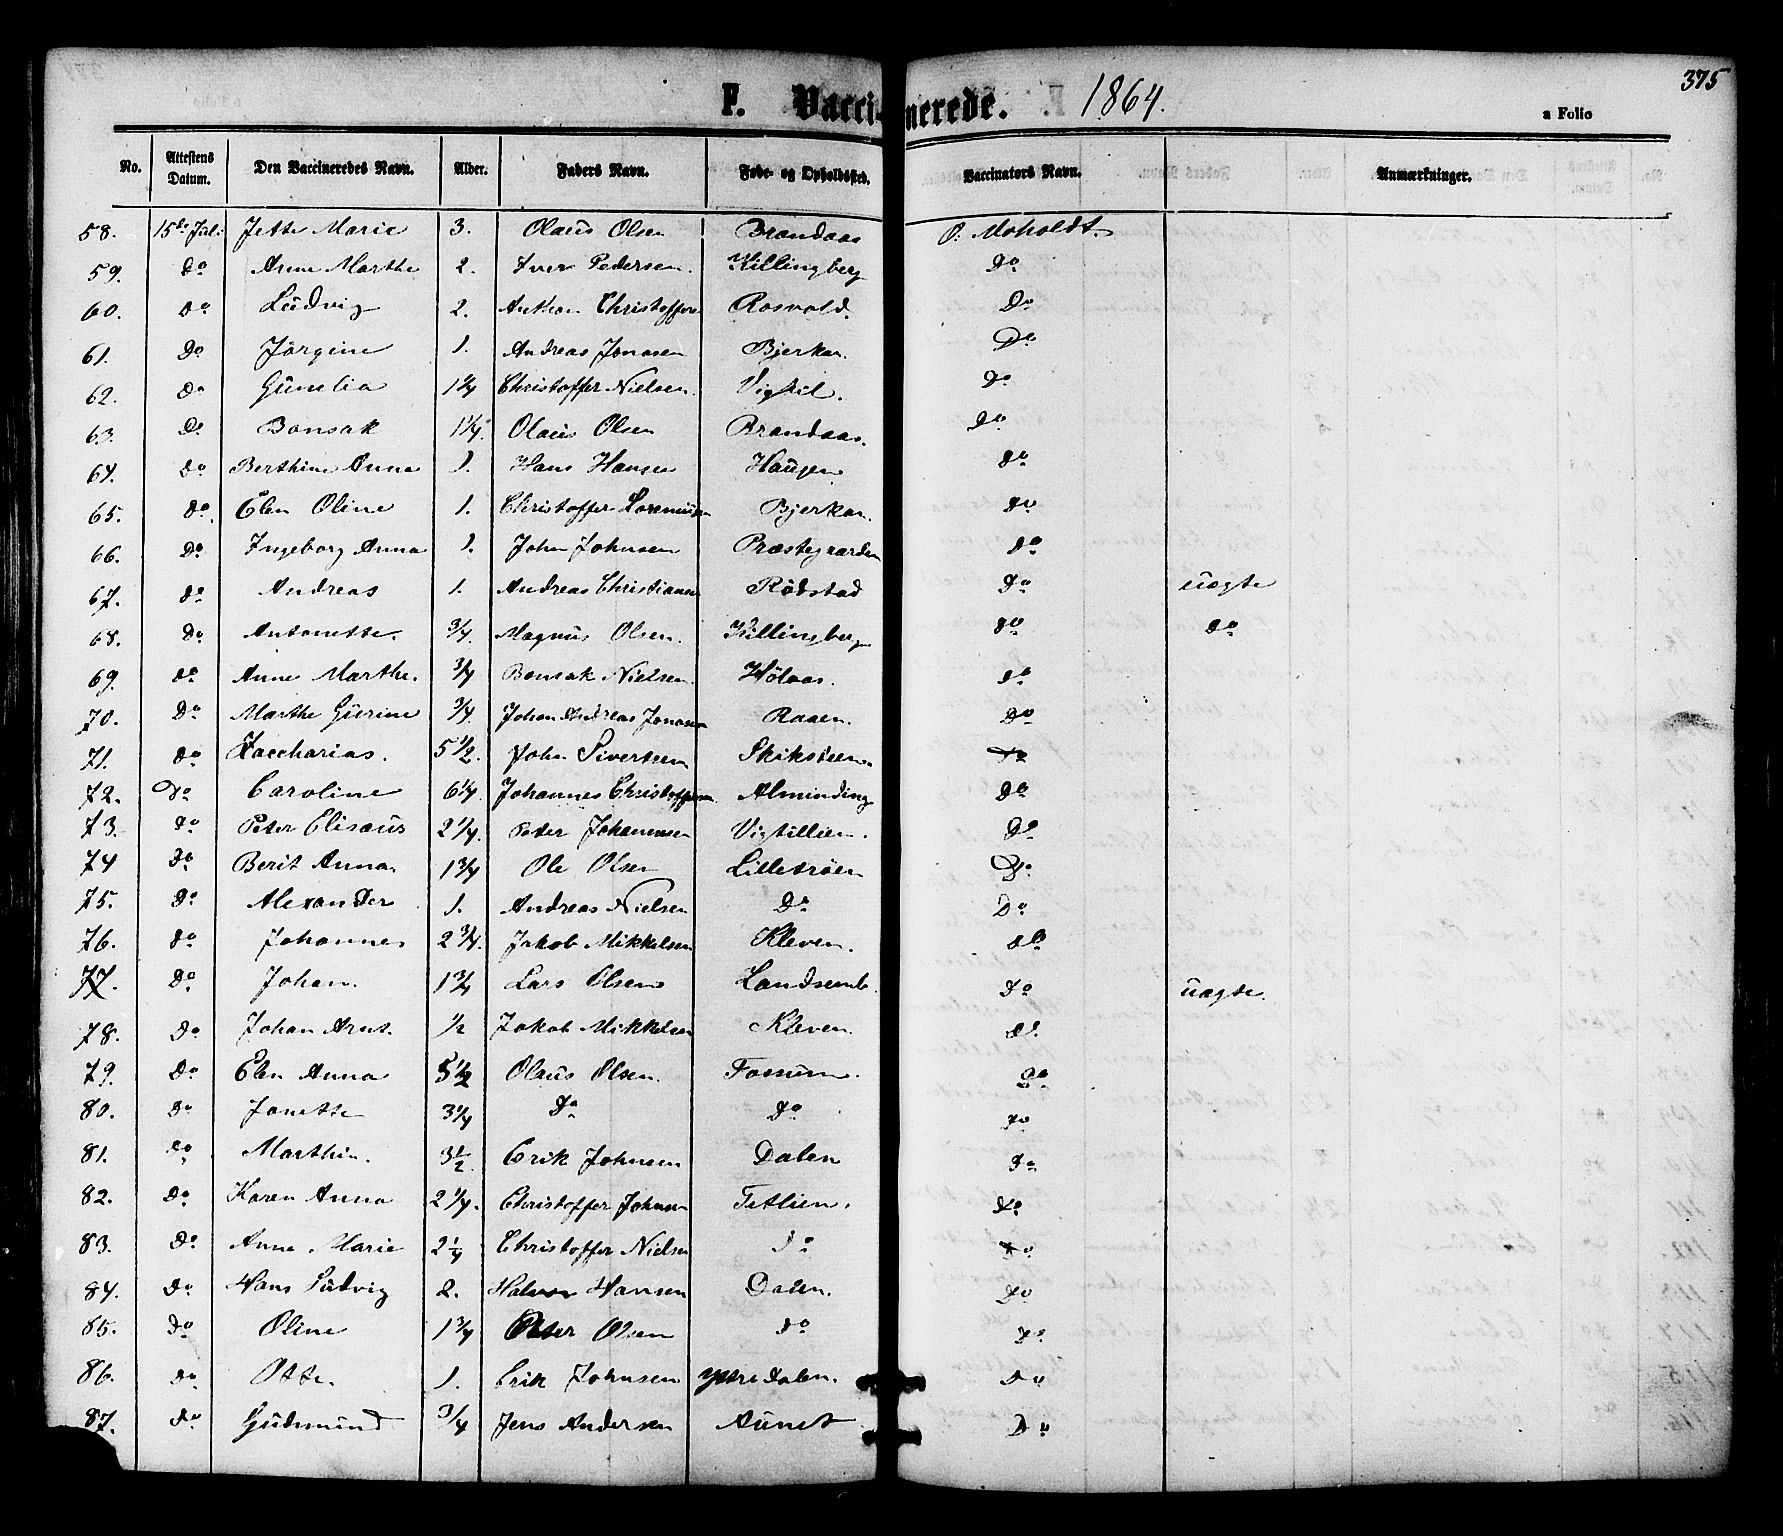 375
F. Vaccinerede. 1864.
a Folio
No. Attestens Datum. Den Vaccineredes Navn. Alder. Faders Navn. Føde- og Opholdssted. Vaccinators Navn. Anmærkninger.
58. 15de Juli Jette Marie 3. Olaus Olsen Brandaas O: Moholdt.
59. Do Anne Marthe 2. Iver Pedersen. Killingberg Do
60. Do Ludvig 2. Anthon Christoffers Rosvold. Do
61. Do Jörgine 1. Andreas Jonasen Bjerkan. Do
62. Do Gunelia 1¼ Christoffer Nielsen. Vigtil. Do
63. Do Bonsak 1¼. Olaus Olsen Brandaas. Do
64. Do Berthine Anna 1. Hans Hansen Haugen Do
65. Do Elen Oline 1. Christoffer Bjerkan. Do
66. Do Ingeborg Anna 1. John Johnsen Præstegaarden Do
67. Do Andreas 1. Andreas Christiansen Rödstad Do uægte
68. Do Antonette. ¾. Magnus Olsen. Killingberg Do Do
69. Do Anne Marthe. ¾ Bonsak Nielsen Hölaas. Do
70. Do Marthe Gurine ¾. Johan Andreas Jonasen Raaen. Do
71. Do Zaccharias. 5½. John Sivertsen Skiksteen Do
72. Do Caroline 6¼. Johannes Christoffersen Alminding Do
73. Do Peter Elisæus 2¼. Peter Johannesen Vigtillien. Do
74 Do Berit Anna. 1¾ Ole Olsen Lilletröen Do
75. Do Alexander 1. Andreas Nielsen Do Do
76. Do Johannes 2¾. Jakob Mikkelsen Kleven. Do
77. Do Johan. 1¾ Lars Olsen Landsemb Do uægte.
78. Do Johan Arnt. ½ Jakob Mikkelsen Kleven. Do
79. Do Elen Anna 5½ Olaus Olsen. Fossum. Do
80. Do Jonette 3¼ Do Do Do
81. Do Marthin. 3½. Erik Johnsen Dalen Do
82. Do Karen Anna 2¼. Christoffer Johnsen Tetlien. Do
83. Do Anne Marie 2¼ Christoffer Nielsen Do Do
84. Do Hans Ludvig 2. Halvor Hansen Dalen. Do
85. Do Oline 1¾ Peter Olsen Do Do
86. Do Otte. 1. Erik Johnsen Ystredalen. Do
87. Do Gudmund ¾ Jens Andersen Aunet Do